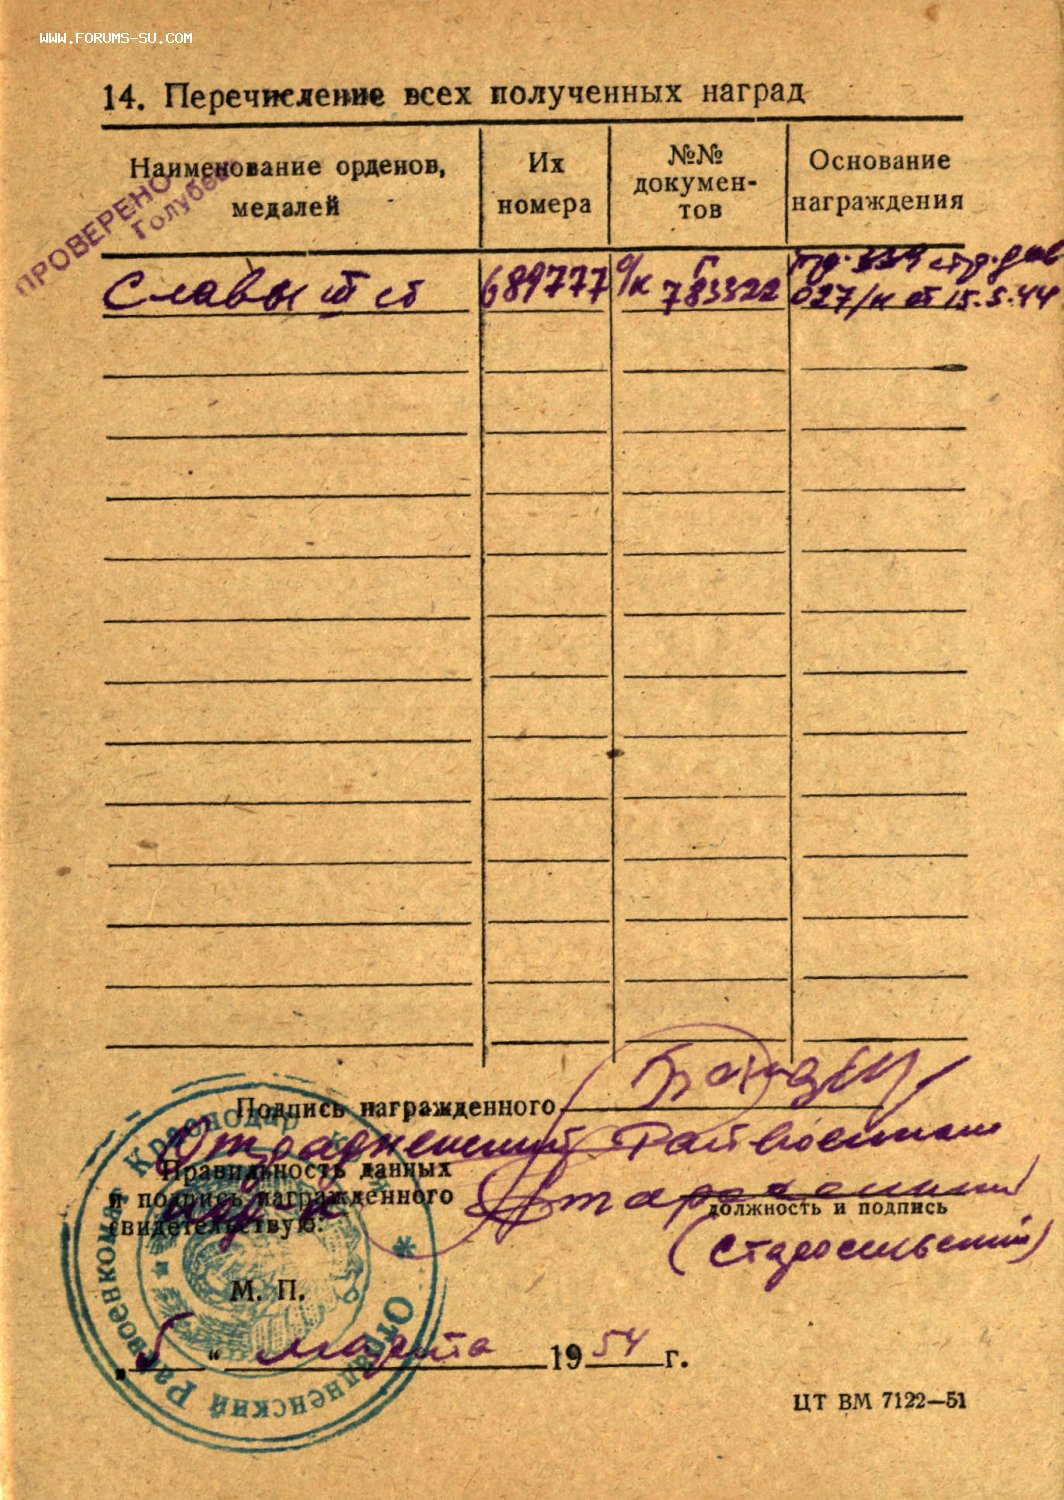 WWW.FORUMS-SU.COM
14. Перечисление всех полученных наград
Наименование орденов, медалей
Их номера
№№ докумен-
тов
Основание награждения
ПРОВЕРЕНО
Голубев
Славы III ст
689777
о/к Г 783322
пр. 339 стр. див
027/н от 15.5.44
Подпись награжденного
Отрадненский Райвоенком
Правильность данных
и подпись награжденного
свидетельствую:
должность и подпись
М. П.
„5“ марта 1954 г.
Краснодар
Отрадненский Райвоенкомат
ЦТ ВМ 7122—51